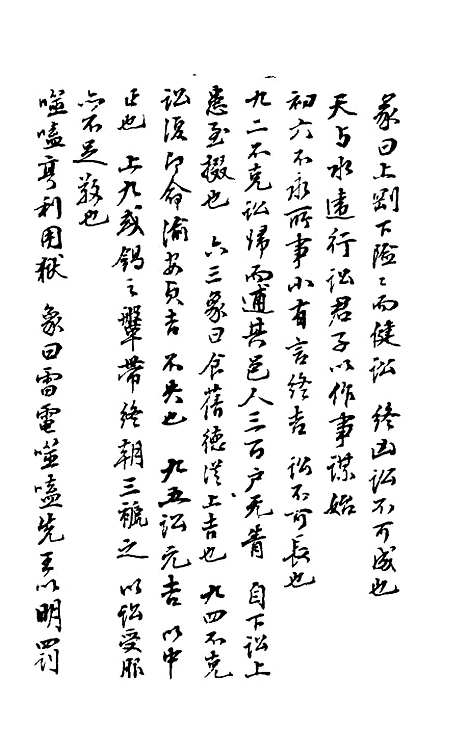 彖曰上剛下險險而健訟 終凶訟不可成也
天与水違行訟君子以作事謀始
初六不永所事小有言終吉 訟不可長也
九二不克訟歸而逋其邑人三百户无眚 自下訟上
患至掇也 六三象曰食舊德從上吉也 九四不克
訟復即命渝安貞吉 不失也 九五訟元吉 以中
正也 上九或錫之鞶帶終朝三褫之 以訟受服
亦不足敬也
噬嗑亨利用獄 象曰雷電噬嗑先王以明罰